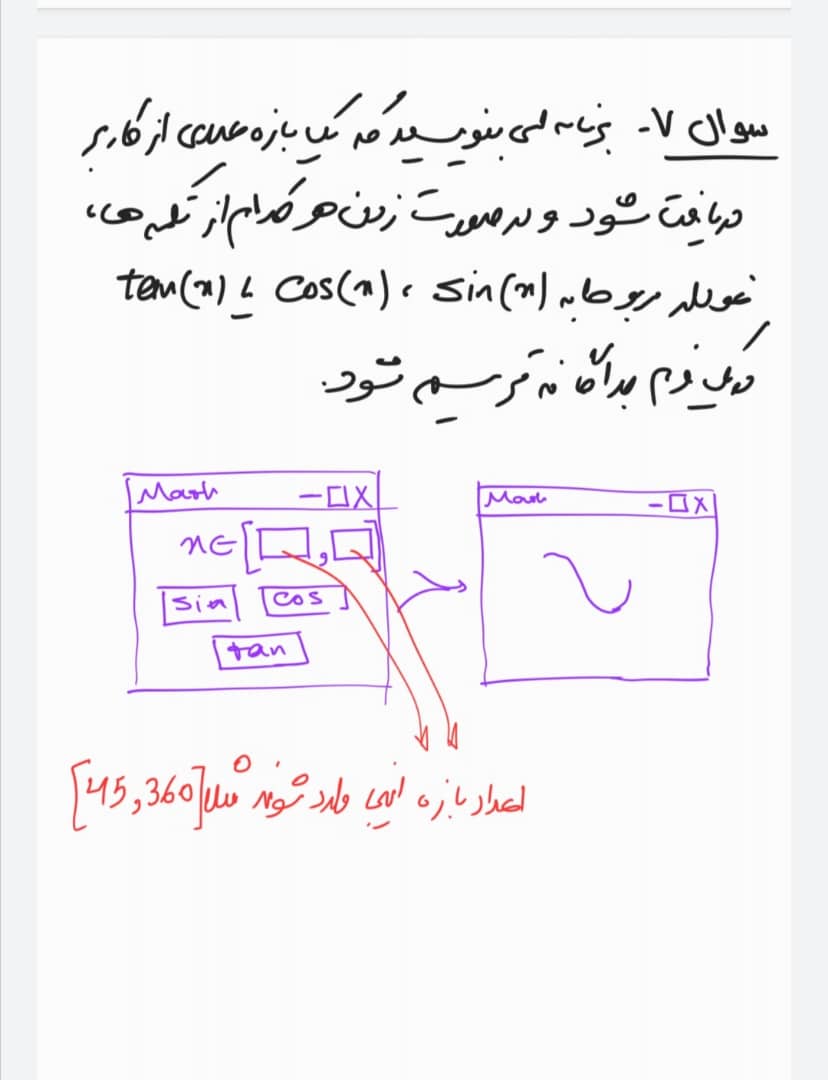 سوال ۷- برنامه ای بنویسید که یک بازه عددی از کاربر
دریافت شود و در صورت زدن هر کدام از تکمه ها،
نمودار مربوط به sin(x) ، cos(x) یا tan(x)
در یک فرم جداگانه ترسیم شود.
Math - □ X
x∈[ , ]
sin cos
tan
Math - □ X
اعداد بازه اینجا وارد شوند مثلا [45,360]